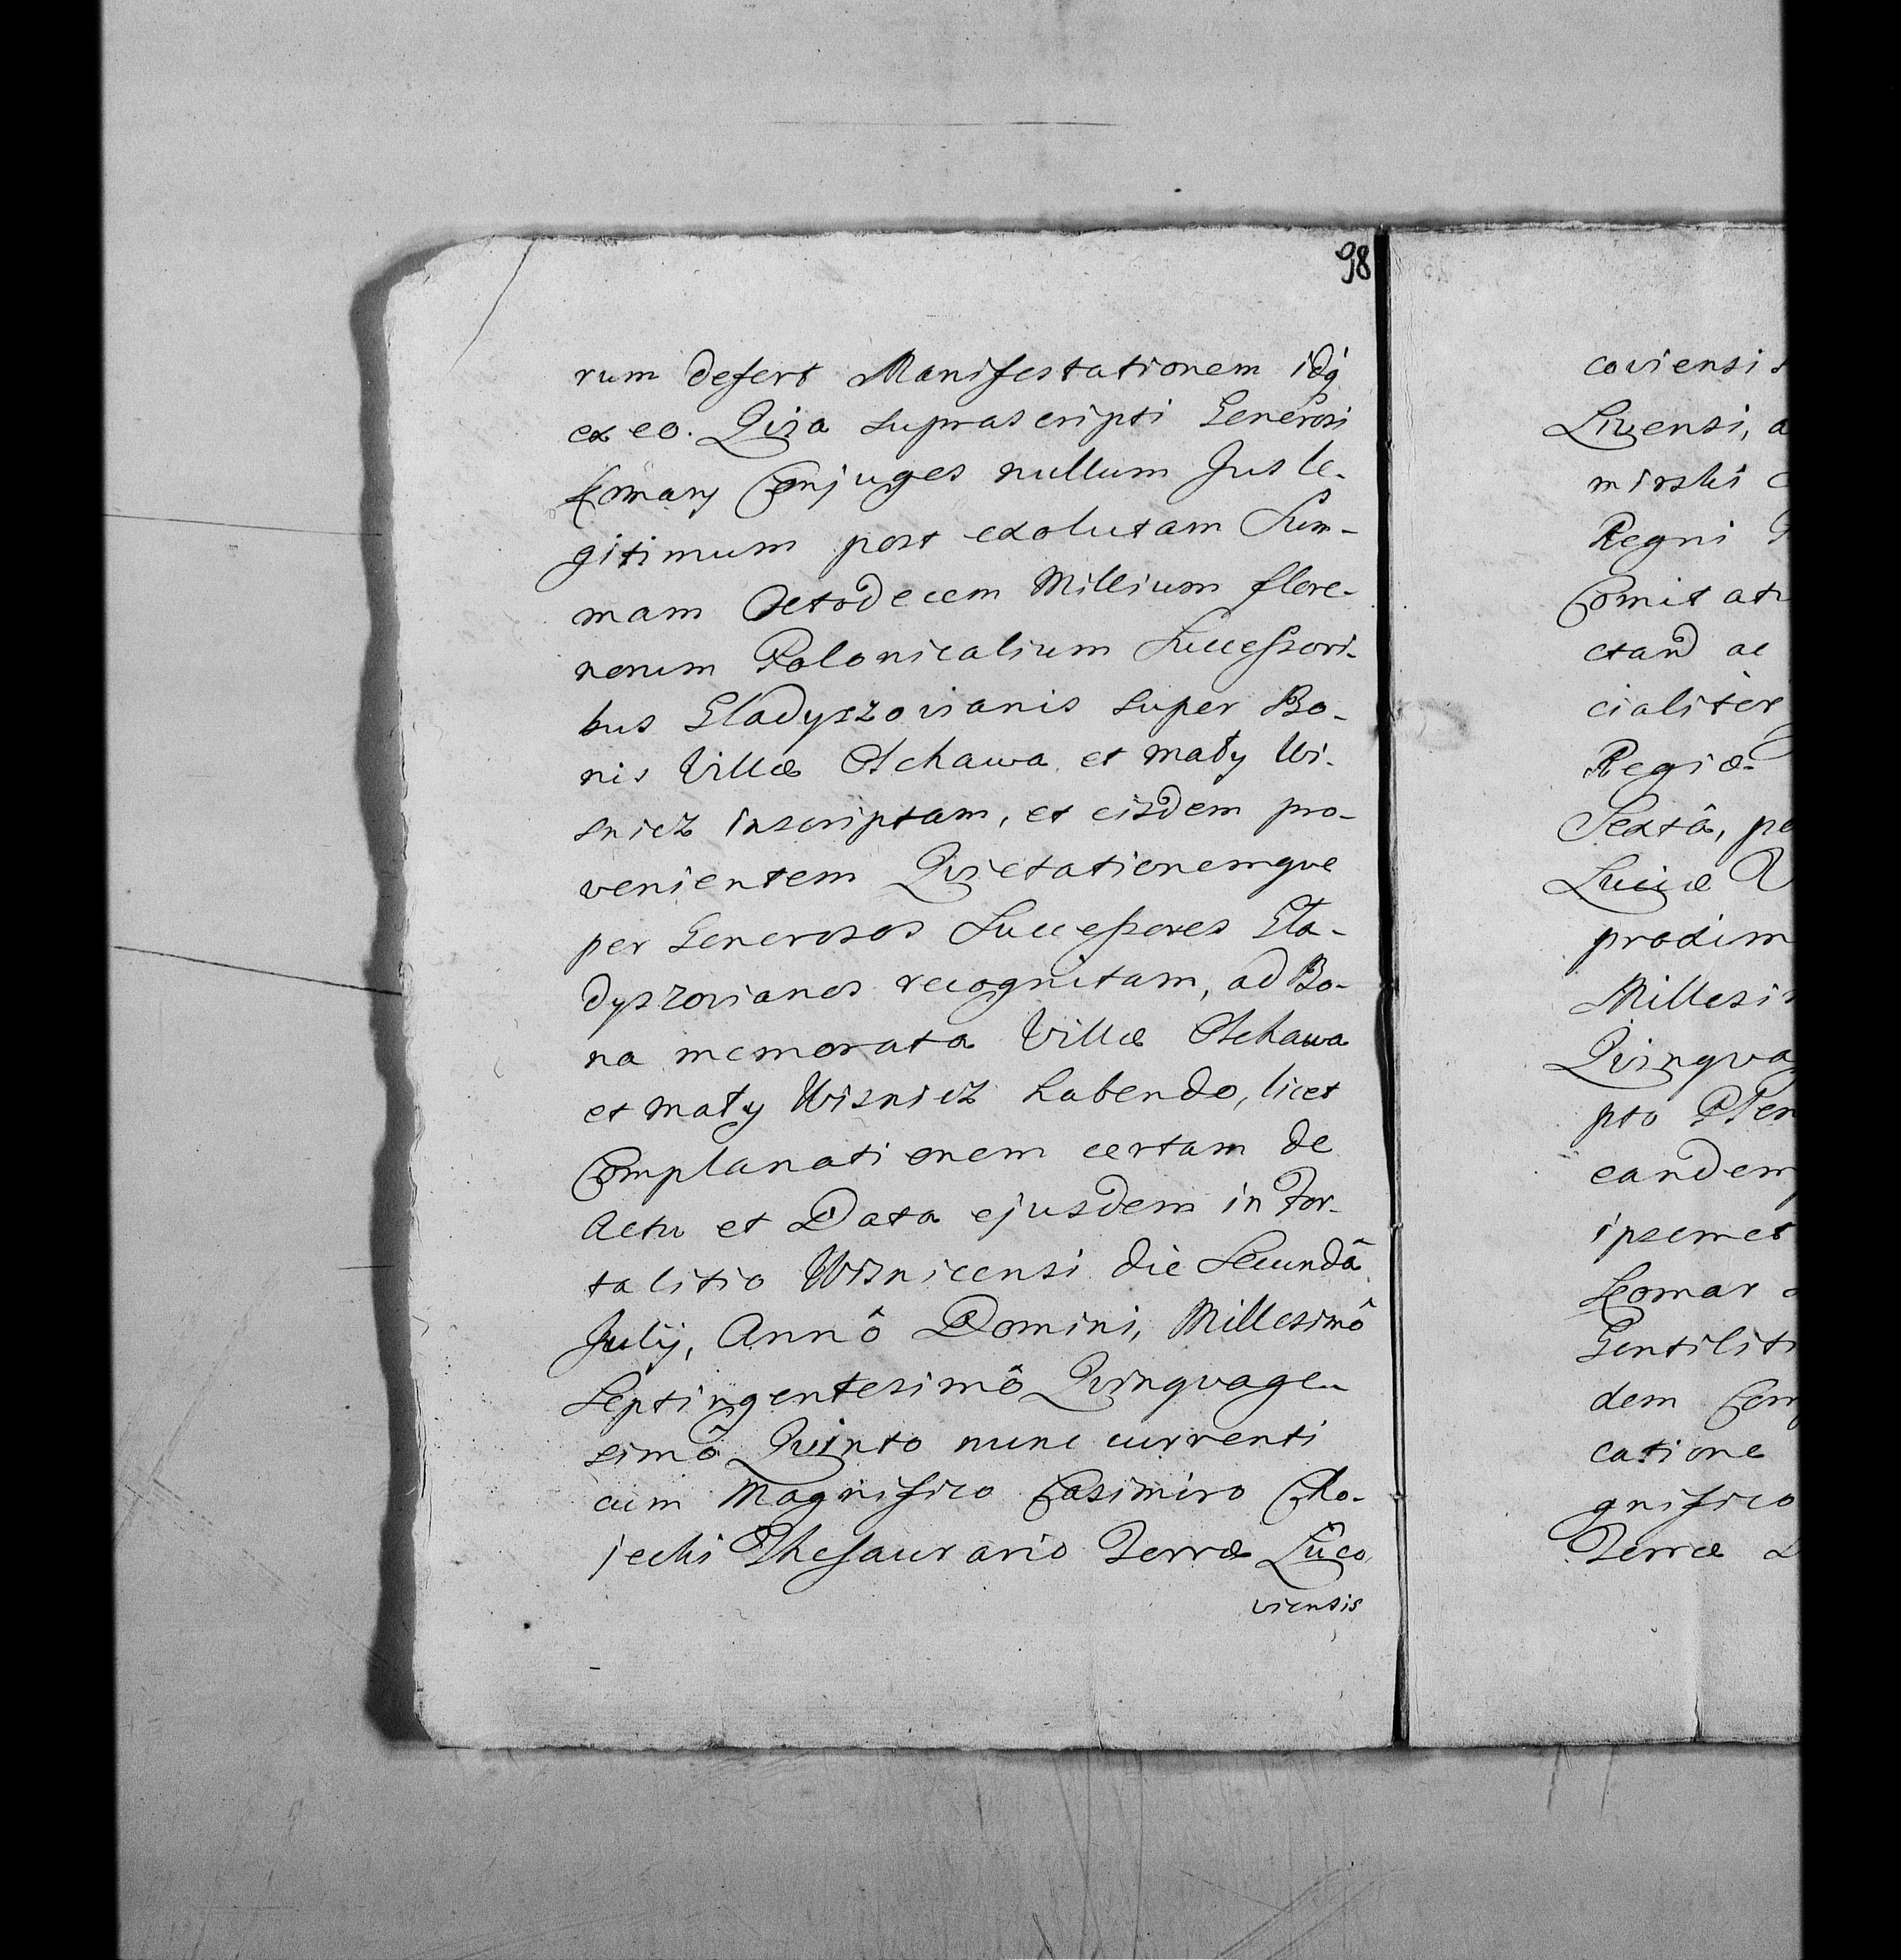 98
rum defert Manifestationem idq́
ex eo. Qvia Suprascripti Generosi
Komary Conjuges nullum Jus le-
gitimum post exolutam Sum-
mam Octodecem Millium flore-
norum Polonicalium Successori-
bus Gładyszovianis super Bo-
nis Villæ Olchawa et mały Wi-
snicz inscriptam, et eisdem pro-
venientem Qvietationemqve
per Generosos Successores Gła-
dyszovianos recognitam, ad Bo-
na memorata Villæ Olchawa
et mały Wisnicz habendo, licet
Complanationem certam de
Actu et Data ejusdem in For-
talitio Wisnicensi die Secundâ
Julij, Annô Domini, Millesimô
Septingentesimô Qvinqvage-
simô Qvinto nunc currenti
cum Magnifico Casimiro Cho-
jecki Thesaurario Terræ Luco
viensis
coviensis
Livensi, a
mirski
Regni
Comitat
ctand ac
cialiter
Regiæ
Sextâ, pe
Luciæ
proxim
Millesi
Qvinqva
pto
eandem
ipsemet
Komar
Gentiliti
dem Com
catione
gnifico
Terræ